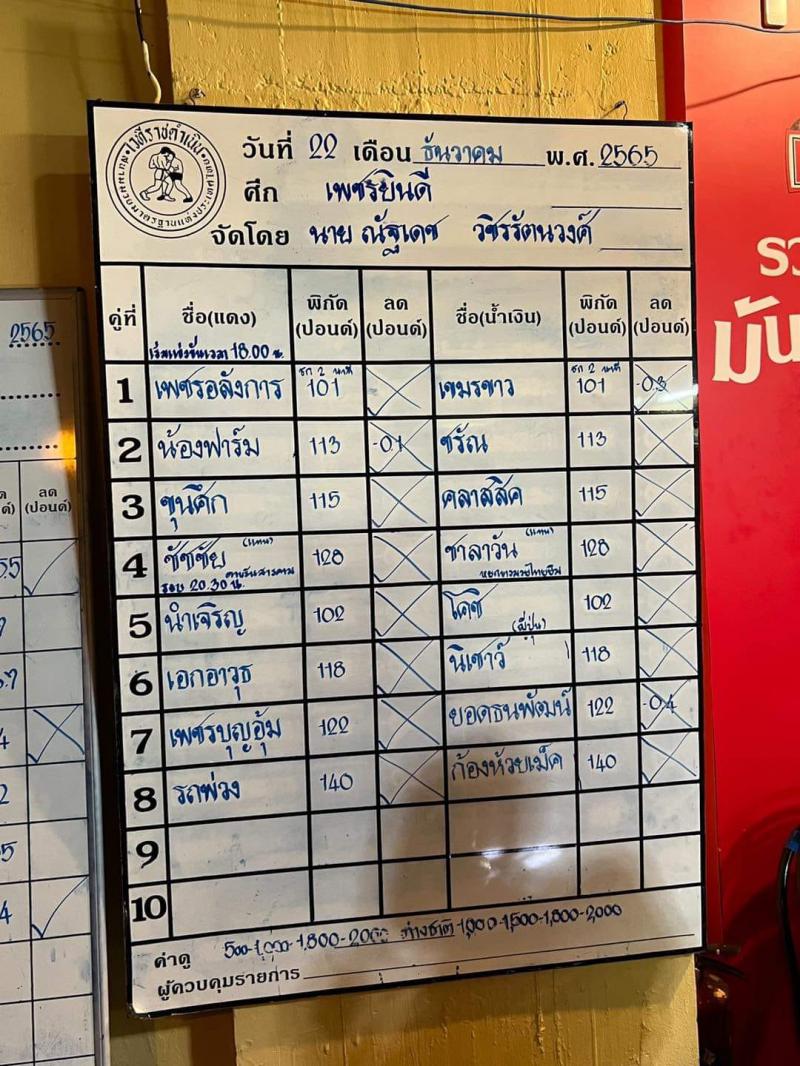 เวทีราชดำเนิน
วันที่ 22 เดือน ธันวาคม พ.ศ. 2565
ศึก เพชรยินดี
จัดโดย นาย ณัฐเดช วชิรรัตนวงศ์
คู่ที่ ชื่อ(แดง) พิกัด (ปอนด์) ลด (ปอนด์) ชื่อ(น้ำเงิน) พิกัด (ปอนด์) ลด (ปอนด์)
เริ่มแข่งขันเวลา 18.00 น.
ยก 2 นาที ยก 2 นาที
1 เพชรอลังการ 101 เขมรขาว 101 -0.3
2 น้องฟาร์ม 113 -0.1 ชรัณ 113
3 ขุนศึก 115 คลาสสิค 115
4 ชัชชัย (แทน) 128 ชาลาวัน (แทน) 128
รอบ 20.30 น.
5 นำเจริญ 102 โคชิ 102
(ญี่ปุ่น)
6 เอกอาวุธ 118 นิเชาว์ 118
7 เพชรบุญอุ้ม 122 ยอดธนพัฒน์ 122 -0.4
8 รถพ่วง 140 ก้องห้วยเม็ค 140
9
10
ค่าดู 500-1,000-1,800-2,000 ต่างชาติ-1,000-1,500-1,800-2,000
ผู้ควบคุมรายการ
2565
ลด
(ปอนด์)